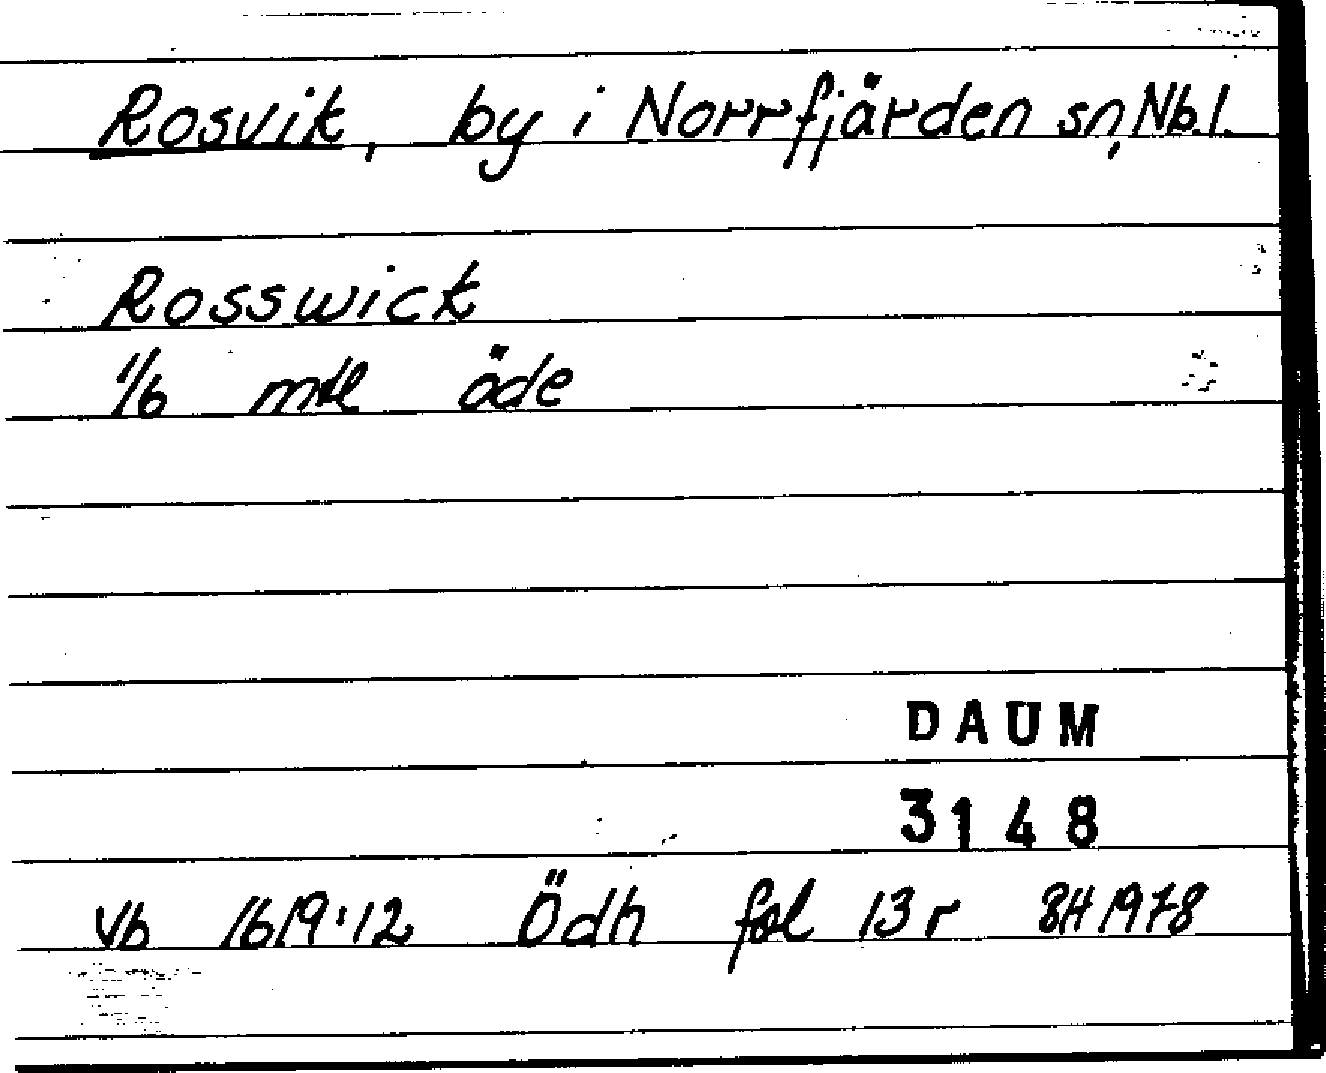 Rosvik, by i Norrfjärden sn, Nb.l.
Rosswick
1/6 mtl öde
DAUM
3148
Vb 1619:12 Ödh fol 13 r BH 1978